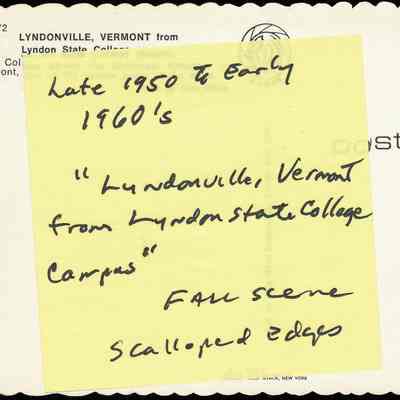 72 LYNDONVILLE, VERMONT from
Lyndon State College
Col
ont,
Late 1950 to Early
1960's
"Lyndonville, Vermont
from Lyndon State College
Campus"
Fall scene
Scalloped Edges
post
NEW YORK